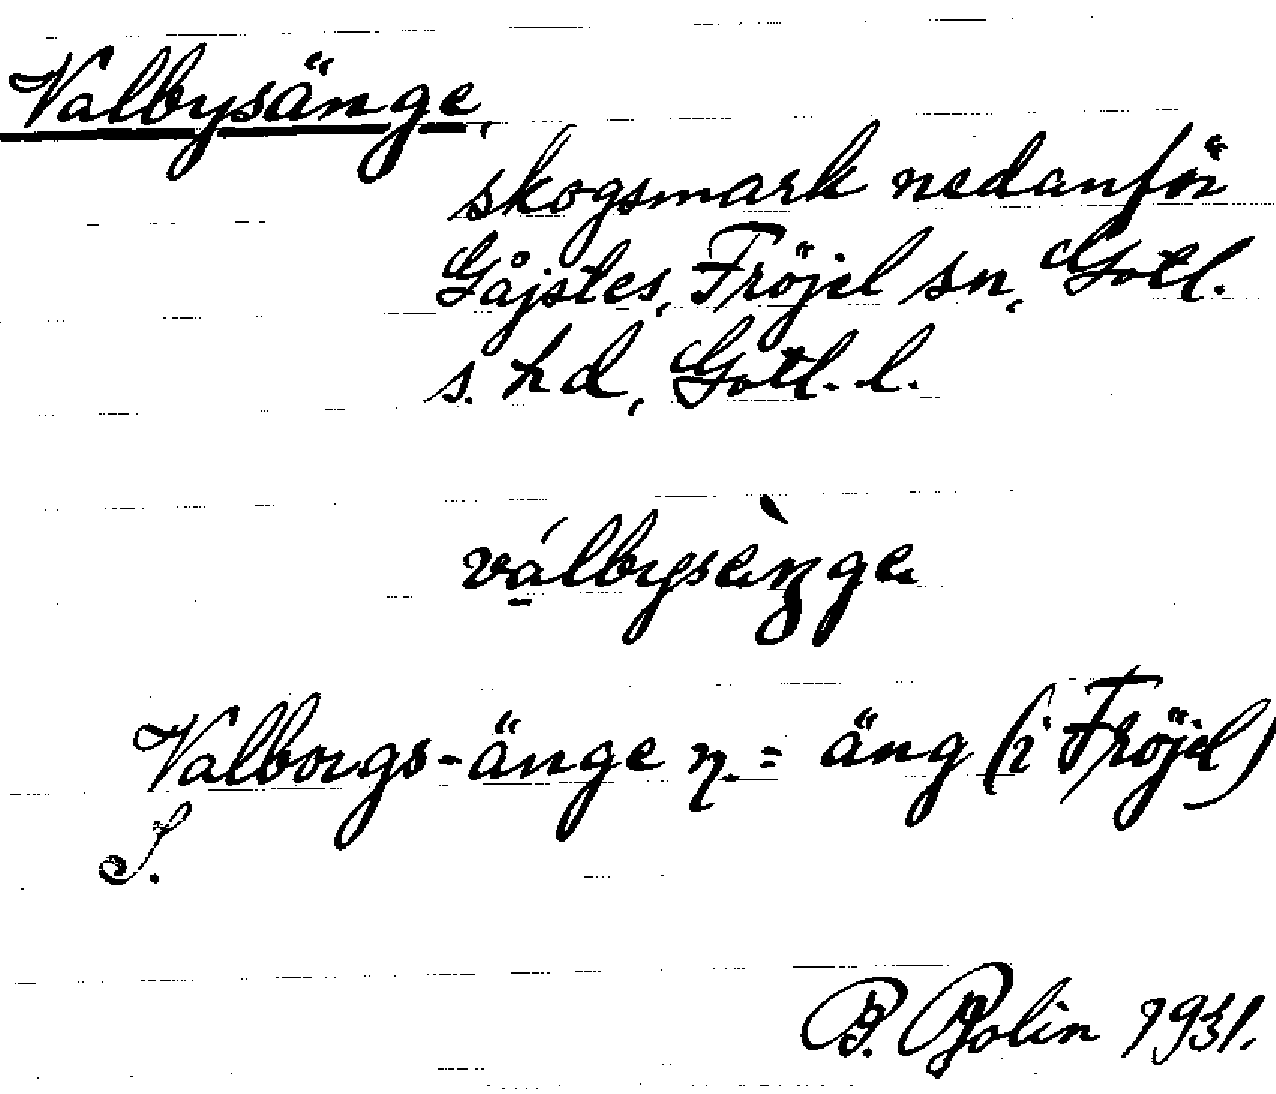 Valbysänge,
skogsmark nedanför
Gåjstes, Fröjel sn, Gotl.
s. hd, Gotl. l.
válbysèŋge
Valborgs-änge n. = äng (i Fröjel)
S.
B. Bolin 1931.